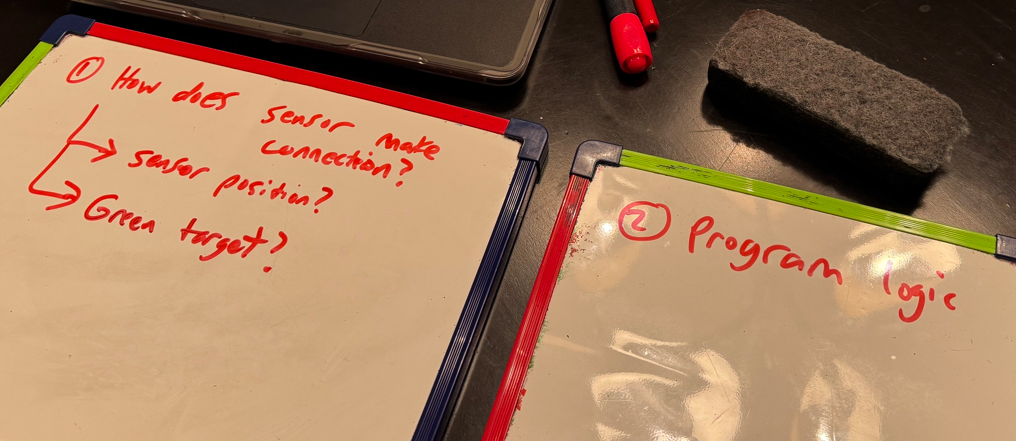 ① How does sensor make
connection?
→ sensor position?
→ Green target?
② Program logic